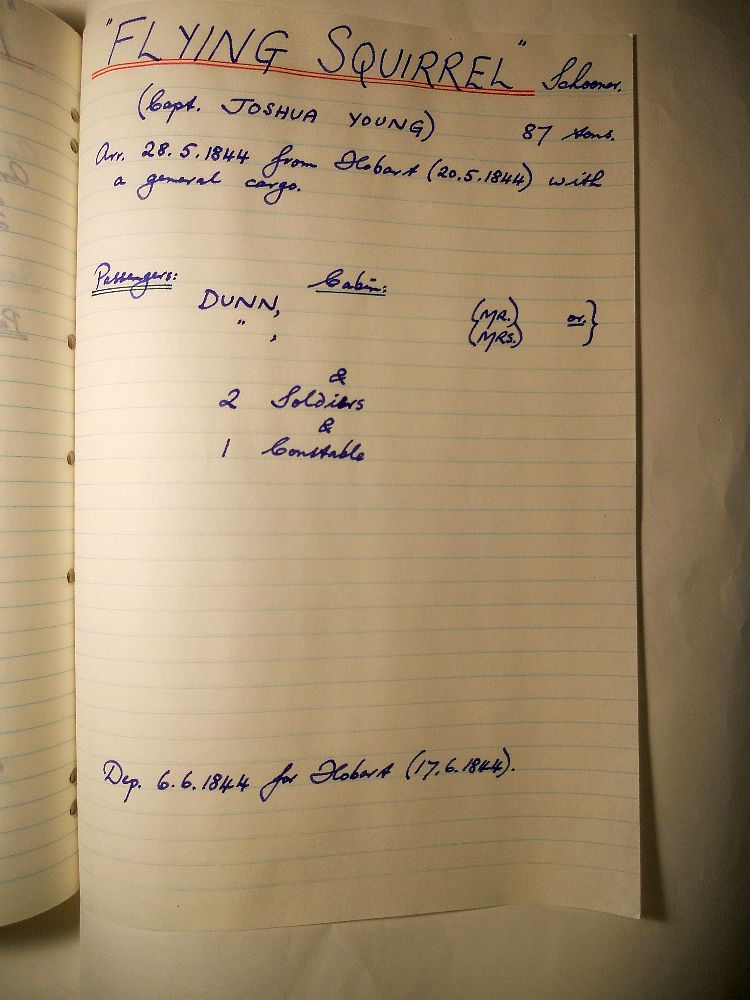 "FLYING SQUIRREL" Schooner.
(Capt. JOSHUA YOUNG) 87 tons.
Arr. 28.5.1844 from Hobart (20.5.1844) with
a general cargo.
Passengers: Cabin:
DUNN, (MR.) or. }
" , (MRS.)
&
2 Soldiers
&
1 Constable
Dep. 6.6.1844 for Hobart (17.6.1844).